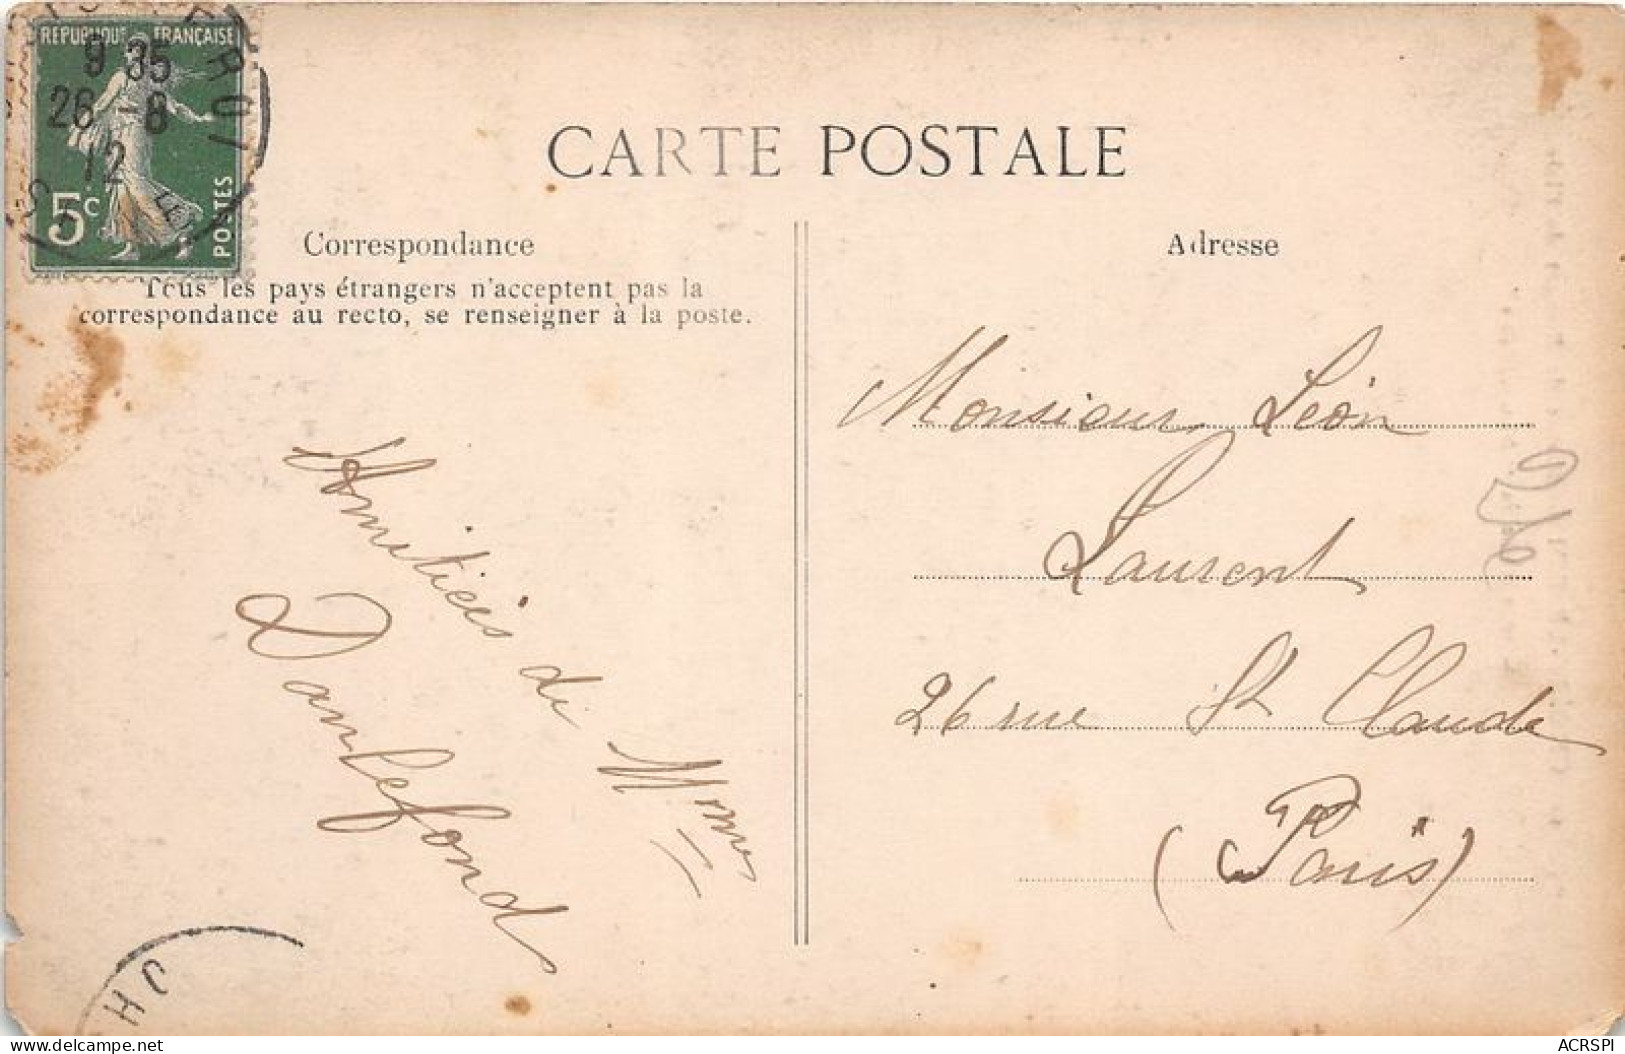 RÉPUBLIQUE FRANÇAISE
9 35
26 - 8
12
5c
POSTES
CARTE POSTALE
Correspondance
Tous les pays étrangers n'acceptent pas la
correspondance au recto, se renseigner à la poste.
Amitiés de Mme
Danlefond
Adresse
Monsieur Léon
Laurent
26 rue St Claude
(Paris)
ACRSPI